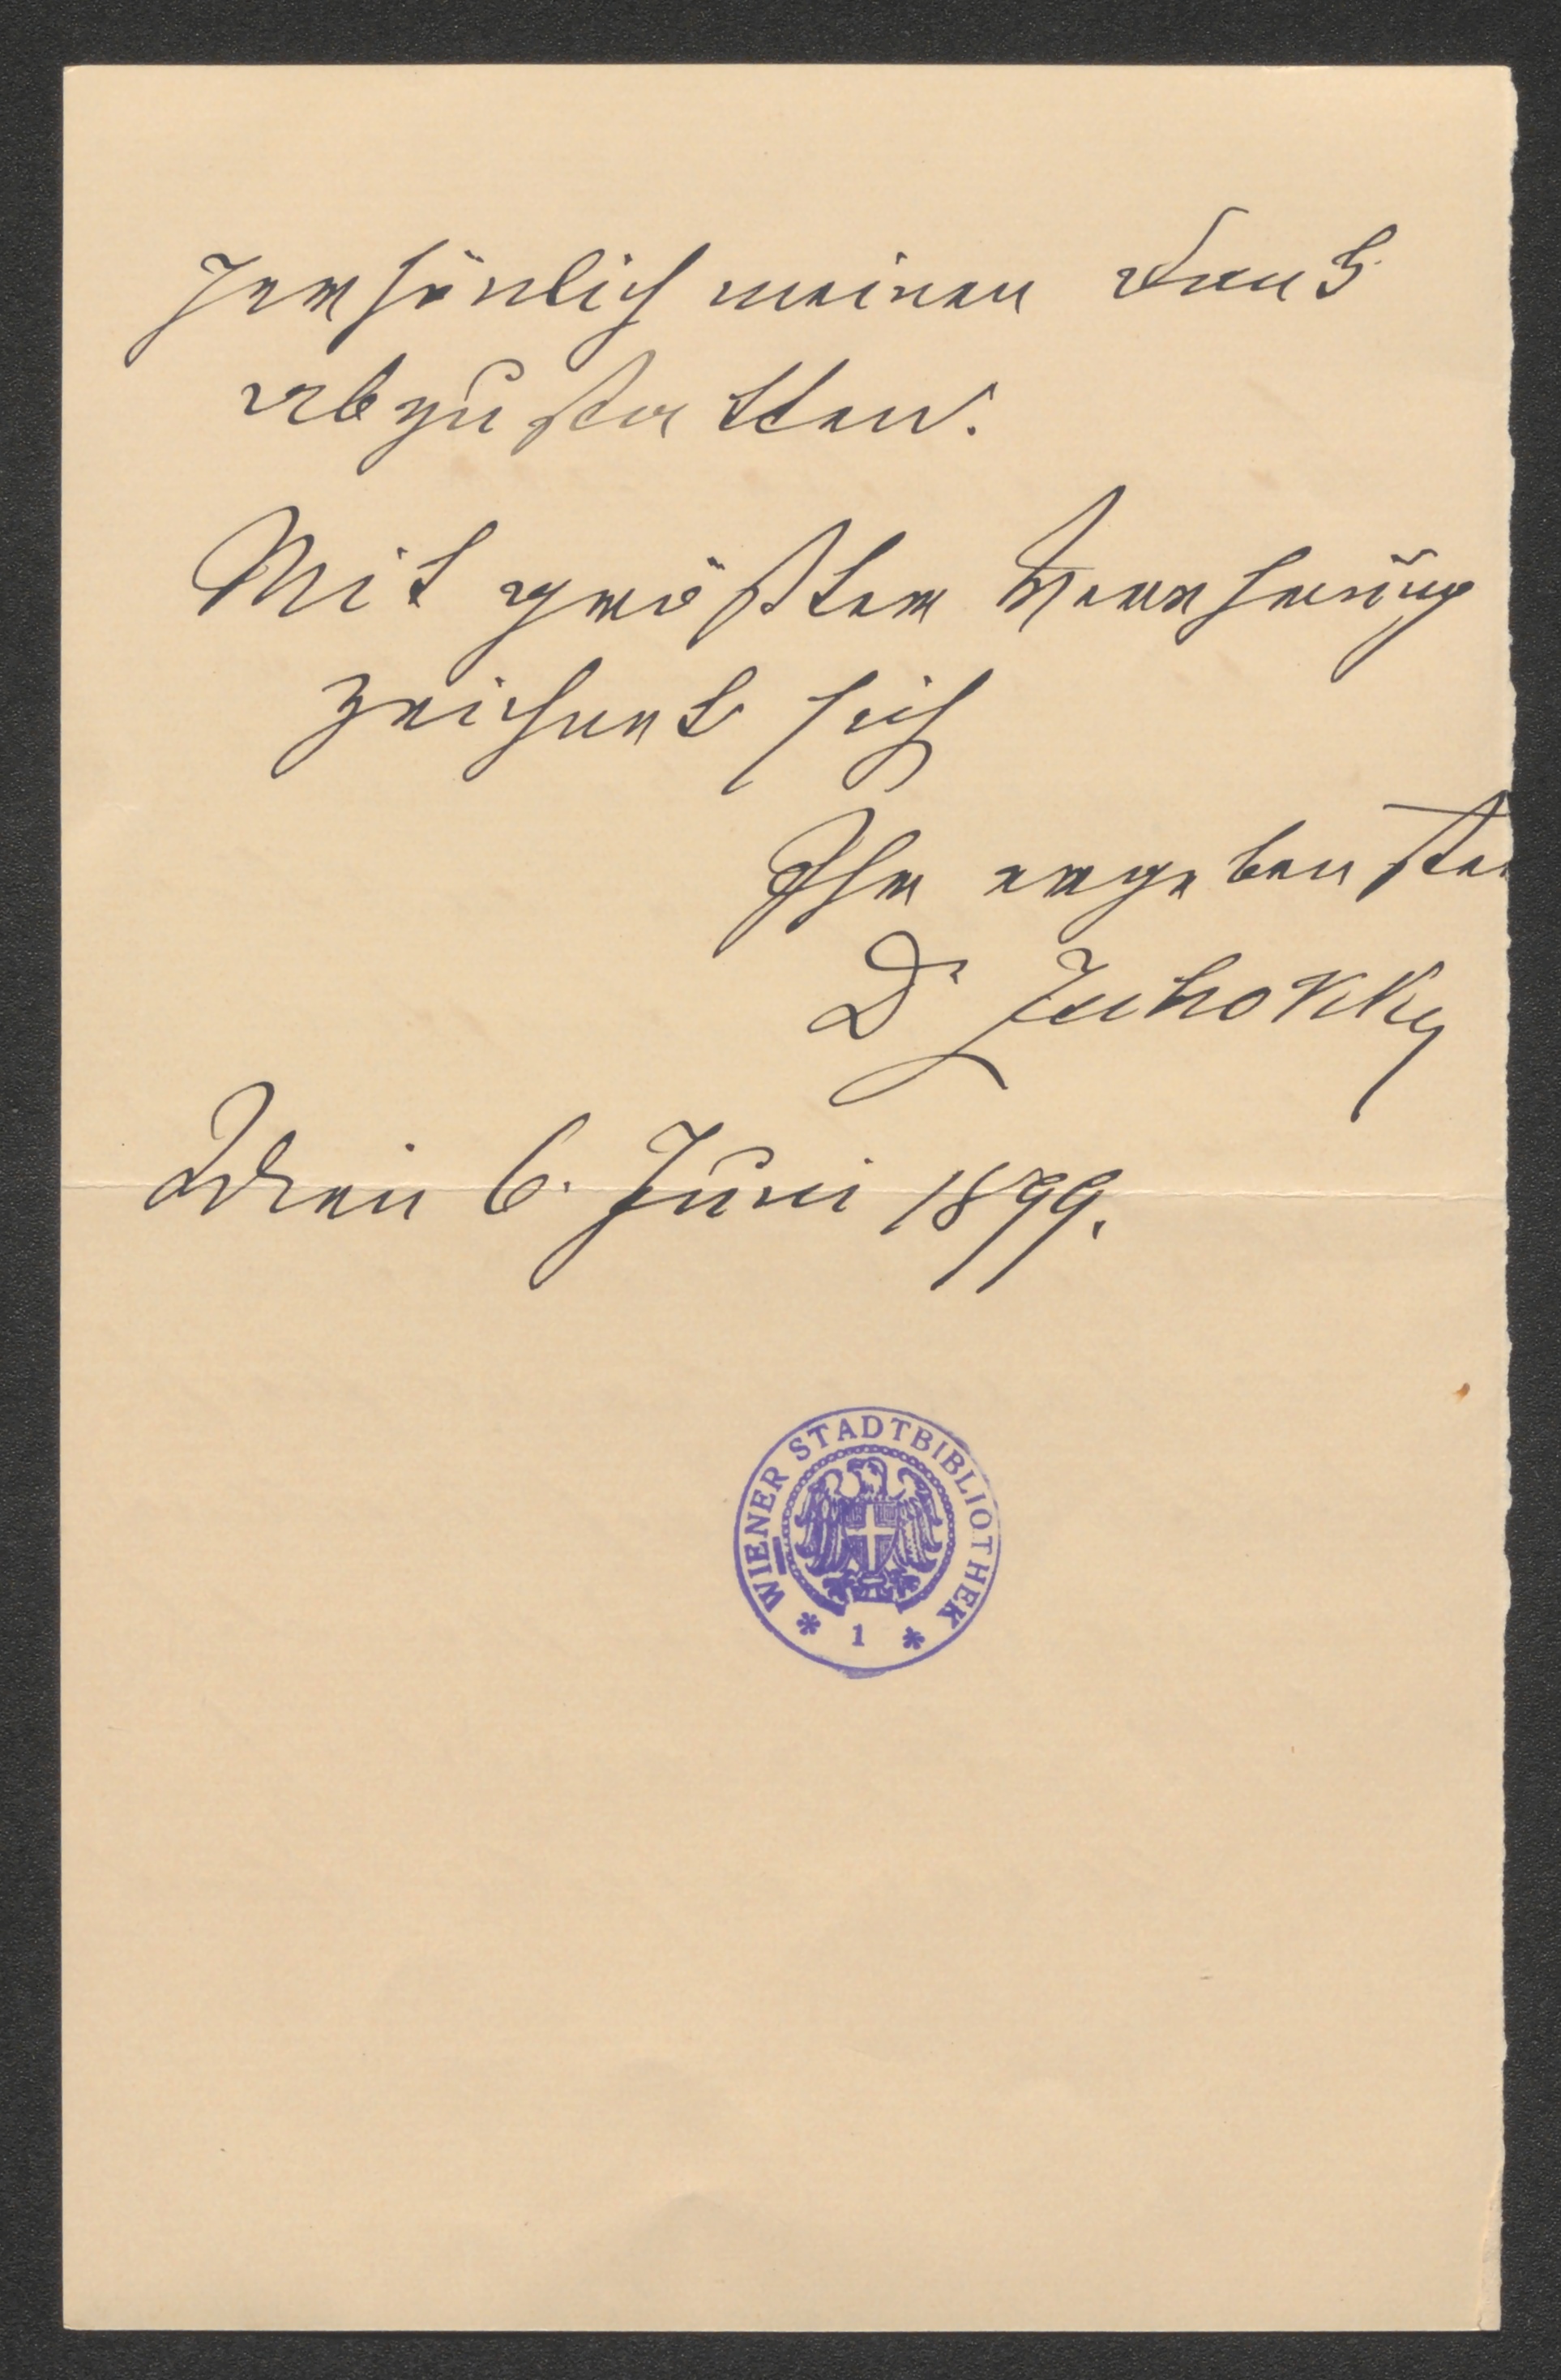 persönlich meinen Dank
abzustatten.
Mit größter Verehrung
zeichnet sich
Ihr ergebenster
Dr
Wien 6. Juni 1899.
WIENER STADTBIBLIOTHEK
* 1 *